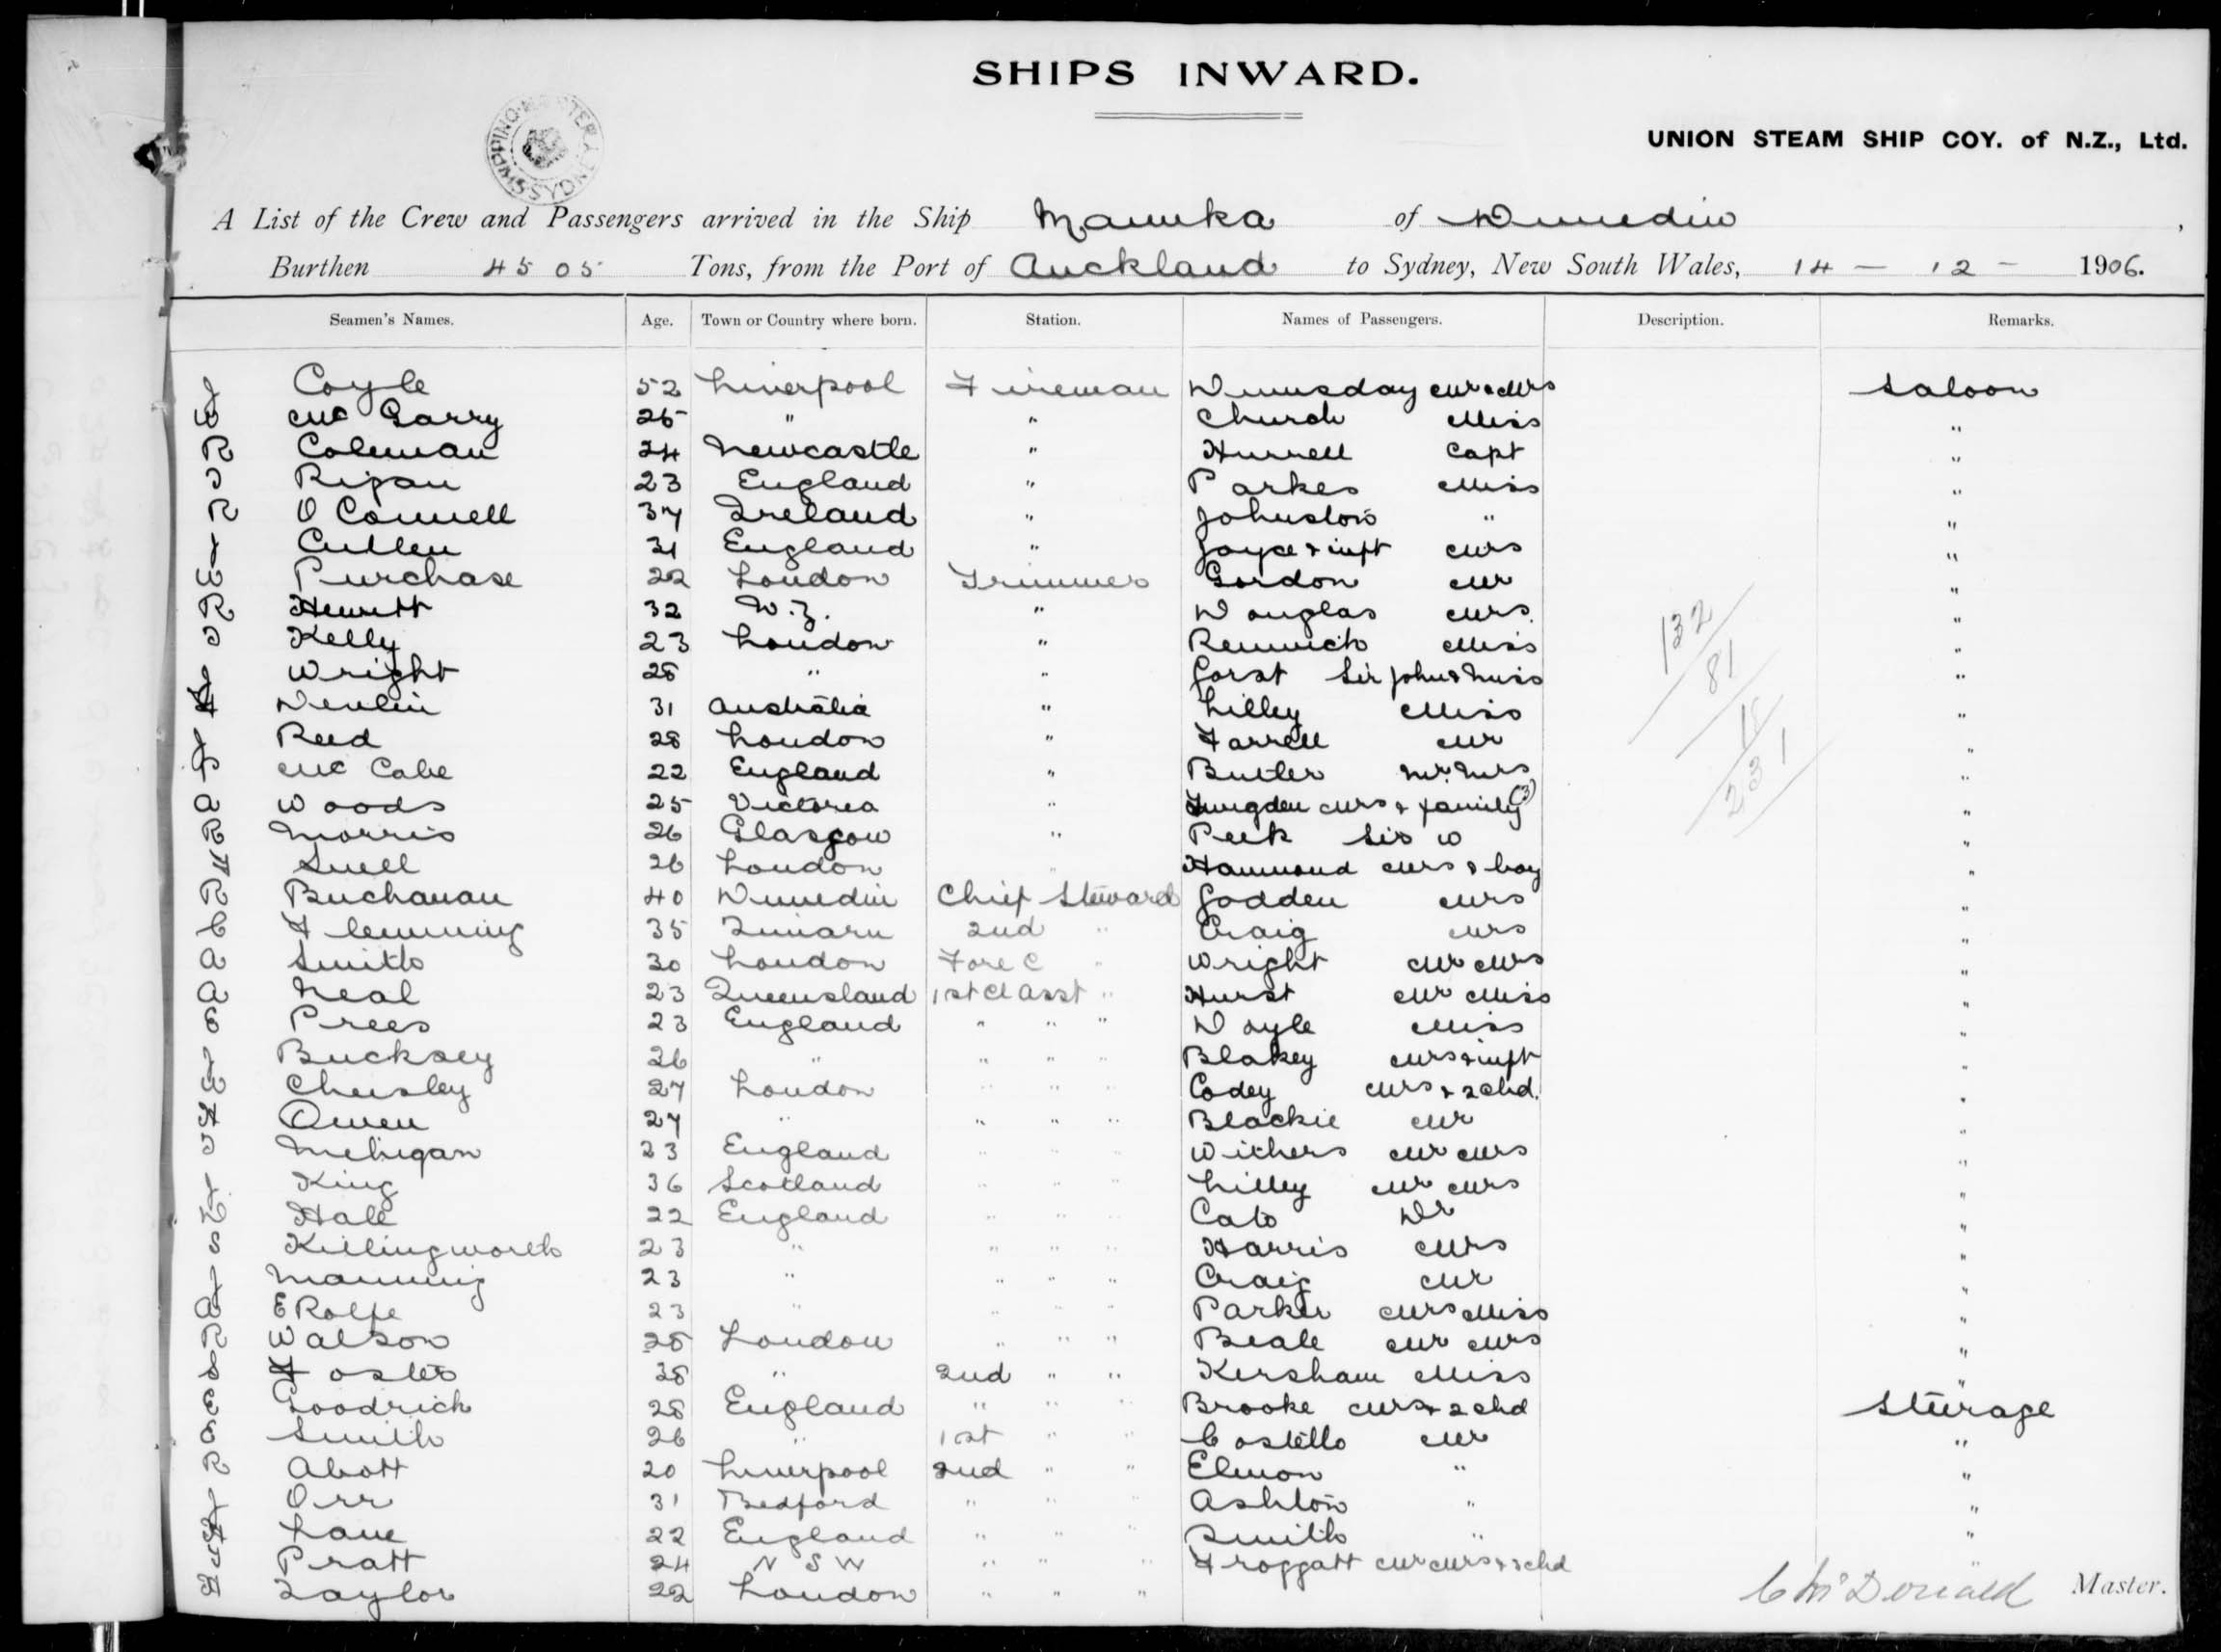 SHIPS INWARD.
UNION STEAM SHIP COY. of N.Z., Ltd.
SHIPPING MASTER SYDNEY
A List of the Crew and Passengers arrived in the Ship Manuka of Dunedin,
Burthen 4505 Tons, from the Port of Auckland to Sydney, New South Wales, 14 – 12 – 1906.
Seamen's Names. Age. Town or Country where born. Station. Names of Passengers. Description. Remarks.
Coyle 52 Liverpool Fireman Dunusday Mr & Mrs Saloon
E McGarry 25 " " Church Miss "
R Coleman 24 Newcastle " Hurrell Capt "
C Rijan 23 England " Parkes Miss "
R O Connell 37 Ireland " Johnston " "
T Cullen 31 England " Joyce & inft Mrs "
E Purchase 22 London Trimmer Gordon Mr "
R Hewitt 32 N.Z. " Douglas Mrs. "
C Kelly 23 London " Rennick Miss "
Wright 28 " " Gorst Sir John & Miss "
Devlin 31 Australia " Lilley Miss "
Reed 28 London " Farrell Mr "
McCabe 22 England " Butler Mr. Mrs "
A Woods 25 Victoria " Mrs & family (3) "
R Morris 26 Glasgow " Peek Sir W "
H Snell 26 London " Hammond Mrs & boy "
R Buchanan 40 Dunedin Chief Steward Godden Mrs "
C Flemming 35 Timaru 2nd " Craig Mrs "
A Smith 30 London Fore C " Wright Mr Mrs "
A Neal 23 Queensland 1st cl asst " Hurst Mr Miss "
Prees 23 England " " " Doyle Miss "
T Bucksey 26 " " " " Blakey Mrs & inft "
E Chesley 27 London " " " Codey Mrs & 2 chd. "
Owen 27 " " " " Blackie Mr "
C Mehigan 23 England " " " Withers Mr Mrs "
T King 36 Scotland " " " Lilley Mr Mrs "
Hale 22 England " " " Cato Dr "
S Killingworth 23 " " " " Harris Mrs "
T Manning 23 " " " " Craig Mr "
A E Rolfe 23 " " " " Parker Mrs Miss "
R Watson 28 London " " " Beale Mr Mrs "
Foster 38 " 2nd " " Kersham Miss "
E Goodrich 28 England " " " Brooke Mrs & 2 chd Steerage
Smith 26 " 1st " " Costello Mr "
R Abott 20 Liverpool 2nd " " Elmon " "
T Orr 31 Bedford " " " Ashton " "
Lane 22 England " " " Smith " "
Pratt 24 N S W " " " Froggatt Mr Mrs & 3 chd "
Taylor 22 London " " "
132
81
18
231
C McDonald Master.